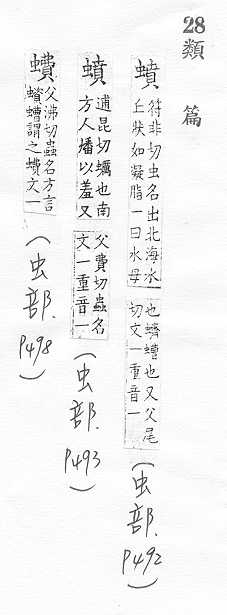 28 類篇
蟦 符非切虫名出北海水
上狀如凝脂一曰水母
也蠐螬也又父尾
切文一重音一
(虫部. P492)
蟦 逋昆切蠣也南
方人燔以羞又
父費切蟲名
文一重音一
(虫部. P493)
父沸切蟲名方言
蠐螬謂之蟦文一
(虫部. P498)